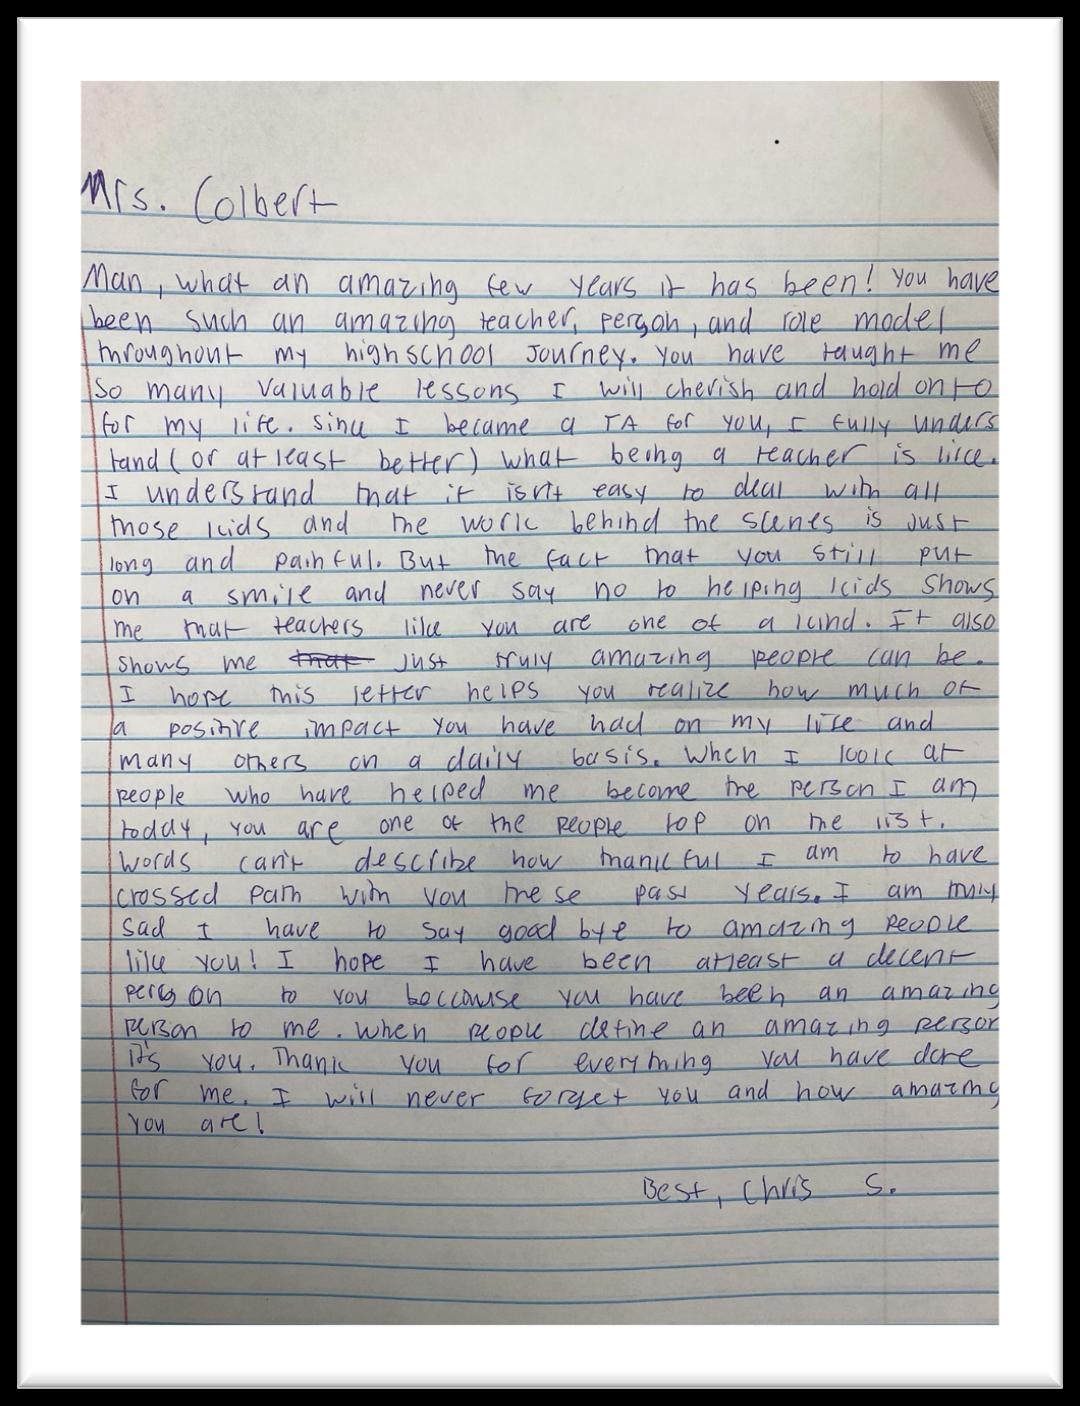 Mrs. Colbert
Man, what an amazing few years it has been! You have
been such an amazing teacher, person, and role model
throughout my highschool journey. You have taught me
so many valuable lessons I will cherish and hold onto
for my life. Since I became a TA for you, I fully unders
tand (or at least better) what being a teacher is like.
I understand that it isn't easy to deal with all
those kids and the work behind the scenes is just
long and painful. But the fact that you still put
on a smile and never say no to helping kids shows
me that teachers like you are one of a kind. It also
shows me that just truly amazing people can be.
I hope this letter helps you realize how much of
a positive impact you have had on my life and
many others on a daily basis. When I look at
people who have helped me become the person I am
today, you are one of the people top on the list.
Words can't describe how thankful I am to have
crossed path with you these pass years. I am truly
sad I have to say good bye to amazing people
like you! I hope I have been atleast a decent
person to you beccawse you have been an amazing
person to me. When people define an amazing person
it's you. Thank you for everything you have done
for me. I will never forget you and how amazing
you are!
Best, Chris S.